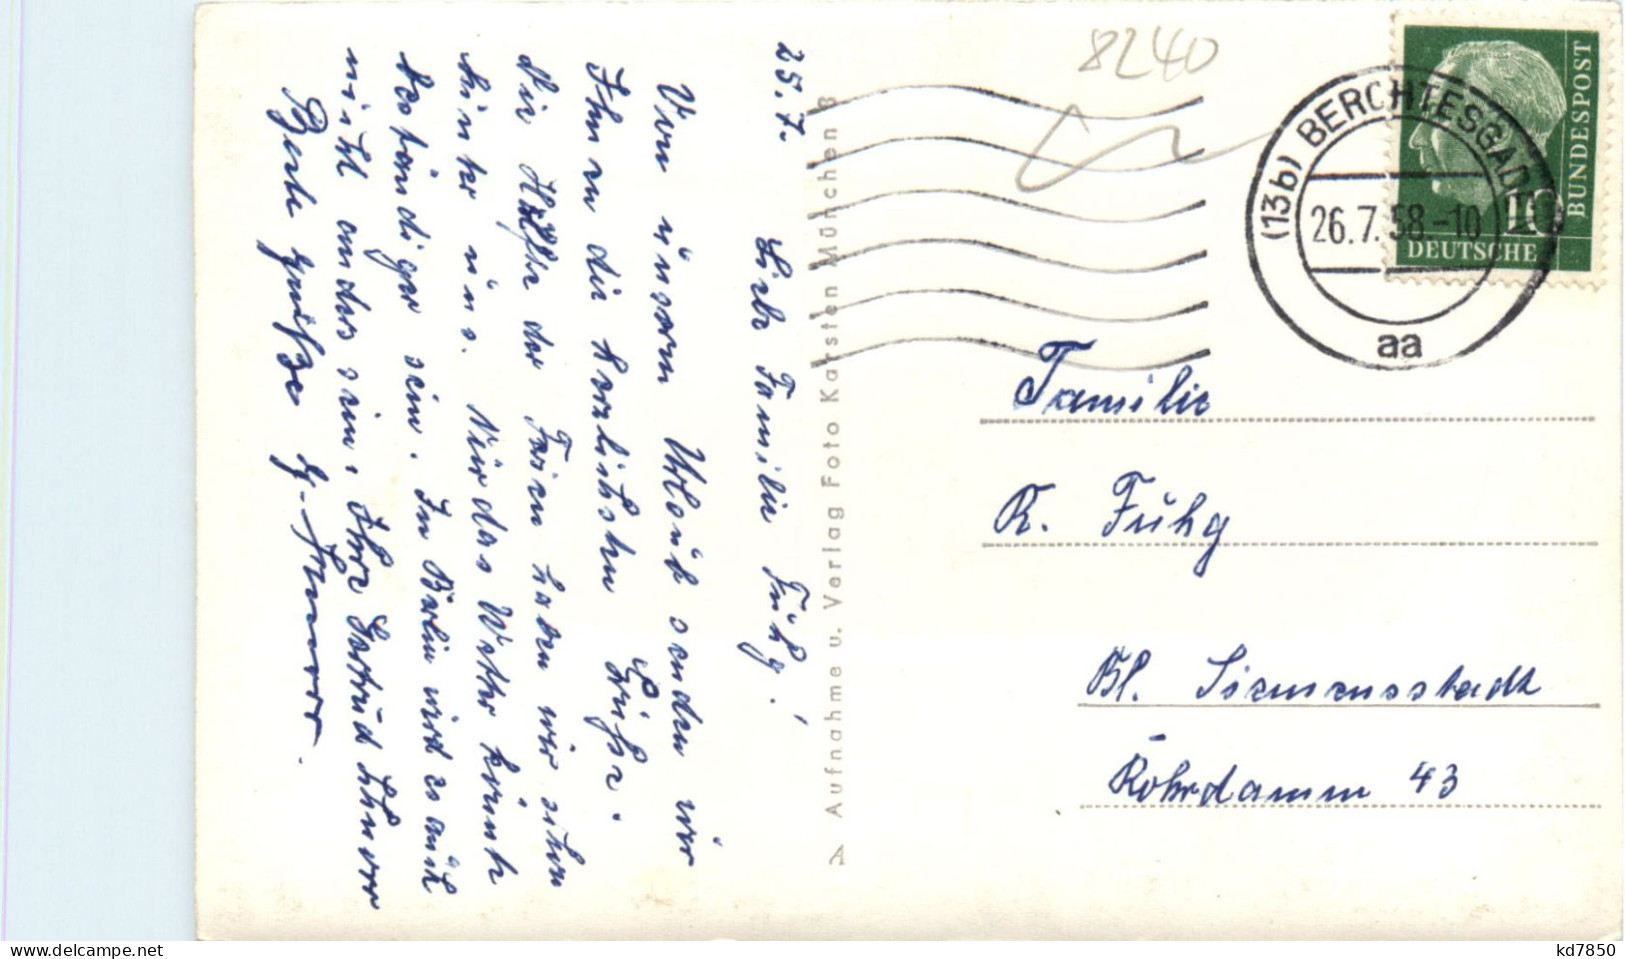 25.7.
Liebe Familie Fuhg!
Von unserm Urlaub senden wir
Ihnen die herzlichsten Grüße.
Die Hälfte der Ferien haben wir schon
hinter uns. Nur das Wetter könnte
beständiger sein. In Berlin wird es auch
nicht anders sein. Ihre Gertrud
Beste Grüße
Aufnahme u. Verlag Foto Karsten München 8
A
8240
(13b) BERCHTESGADEN
26.7.58.-10
aa
10
DEUTSCHE
BUNDESPOST
Familie
R. Fuhg
Bl. Siemensstadt
Rohrdamm 43
www.delcampe.net
kd7850